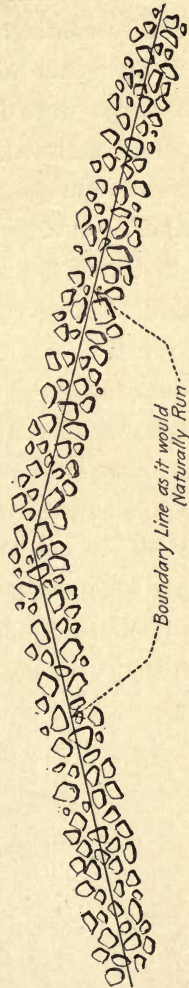 Boundary Line as it would
Naturally Run